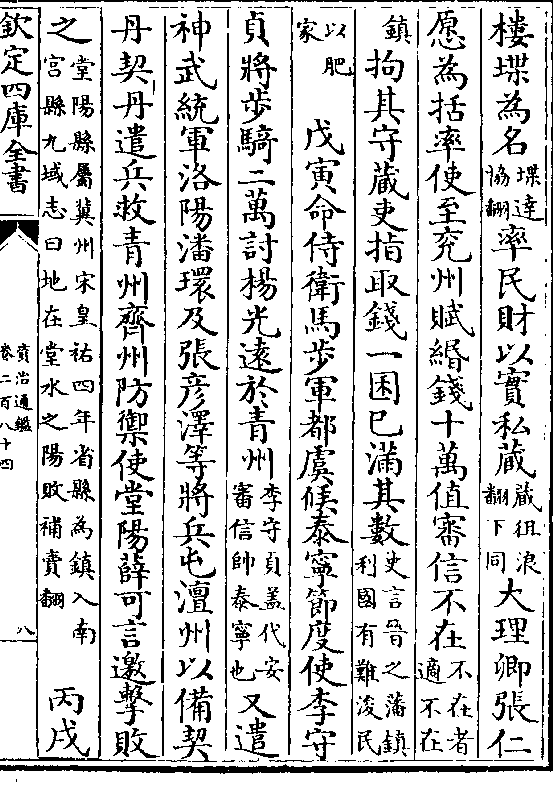 樓堞為名堞達協翻率民財以實私藏藏徂浪翻下同大理卿張仁
愿為括率使至兖州賦緡錢十萬值審信不在不在者適不在
鎮拘其守藏吏指取錢一囷已滿其數史言晉之藩鎮利國有難浚民
以肥家　戊寅命侍衛馬步軍都虞候泰寧節度使李守
貞將步騎二萬討楊光遠於青州李守貞盖代安審信帥泰寧也又遣
神武統軍洛陽潘環及張彦澤等將兵屯澶州以備契
丹契丹遣兵救青州齊州防禦使堂陽薛可言邀擊敗
之堂陽縣屬冀州宋皇祐四年省縣為鎮入南宮縣九域志曰地在堂水之陽敗補賣翻　丙戌
欽定四庫全書
資治通鑑
卷二百八十四
八